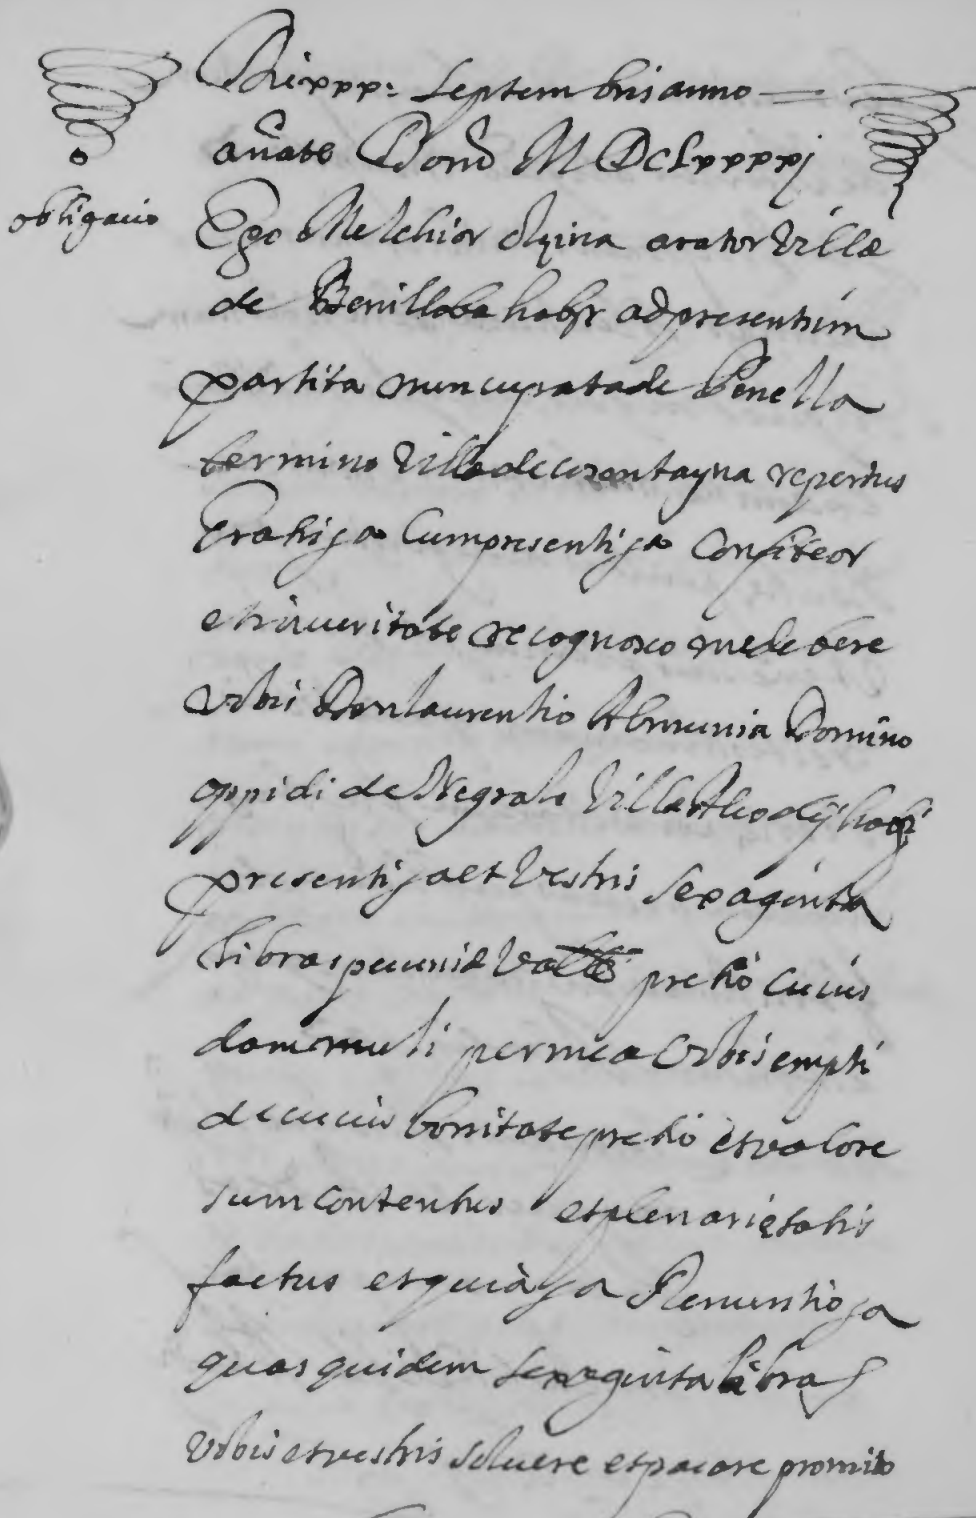 Die xxx: Septembris anno
a nate Domi M DC Lxxxxj
obligacio
Ego Melchior arator Villæ
de Benilloba habr ad presentim
partita nuncupata de Penella
termino Villæ de Cocentayna repertus
Gratis ja Cum presenti ja Confiteor
et in veritate recognosco me debere
Vobis Don Laurentio Almunia Domino
oppidi de Negrals Villæ Alcodij habr
presenti ja et Vestris sexaginta
libras pecuniæ Valle pretio Cuius
dam muli per me a Vobis empti
de cuius bonitate pretio et valore
sum Contentus et plenarie satis
factus et quia ja Renuntio ja
quas quidem sexaginta libras
Vobis et vestris solvere et pacare promito